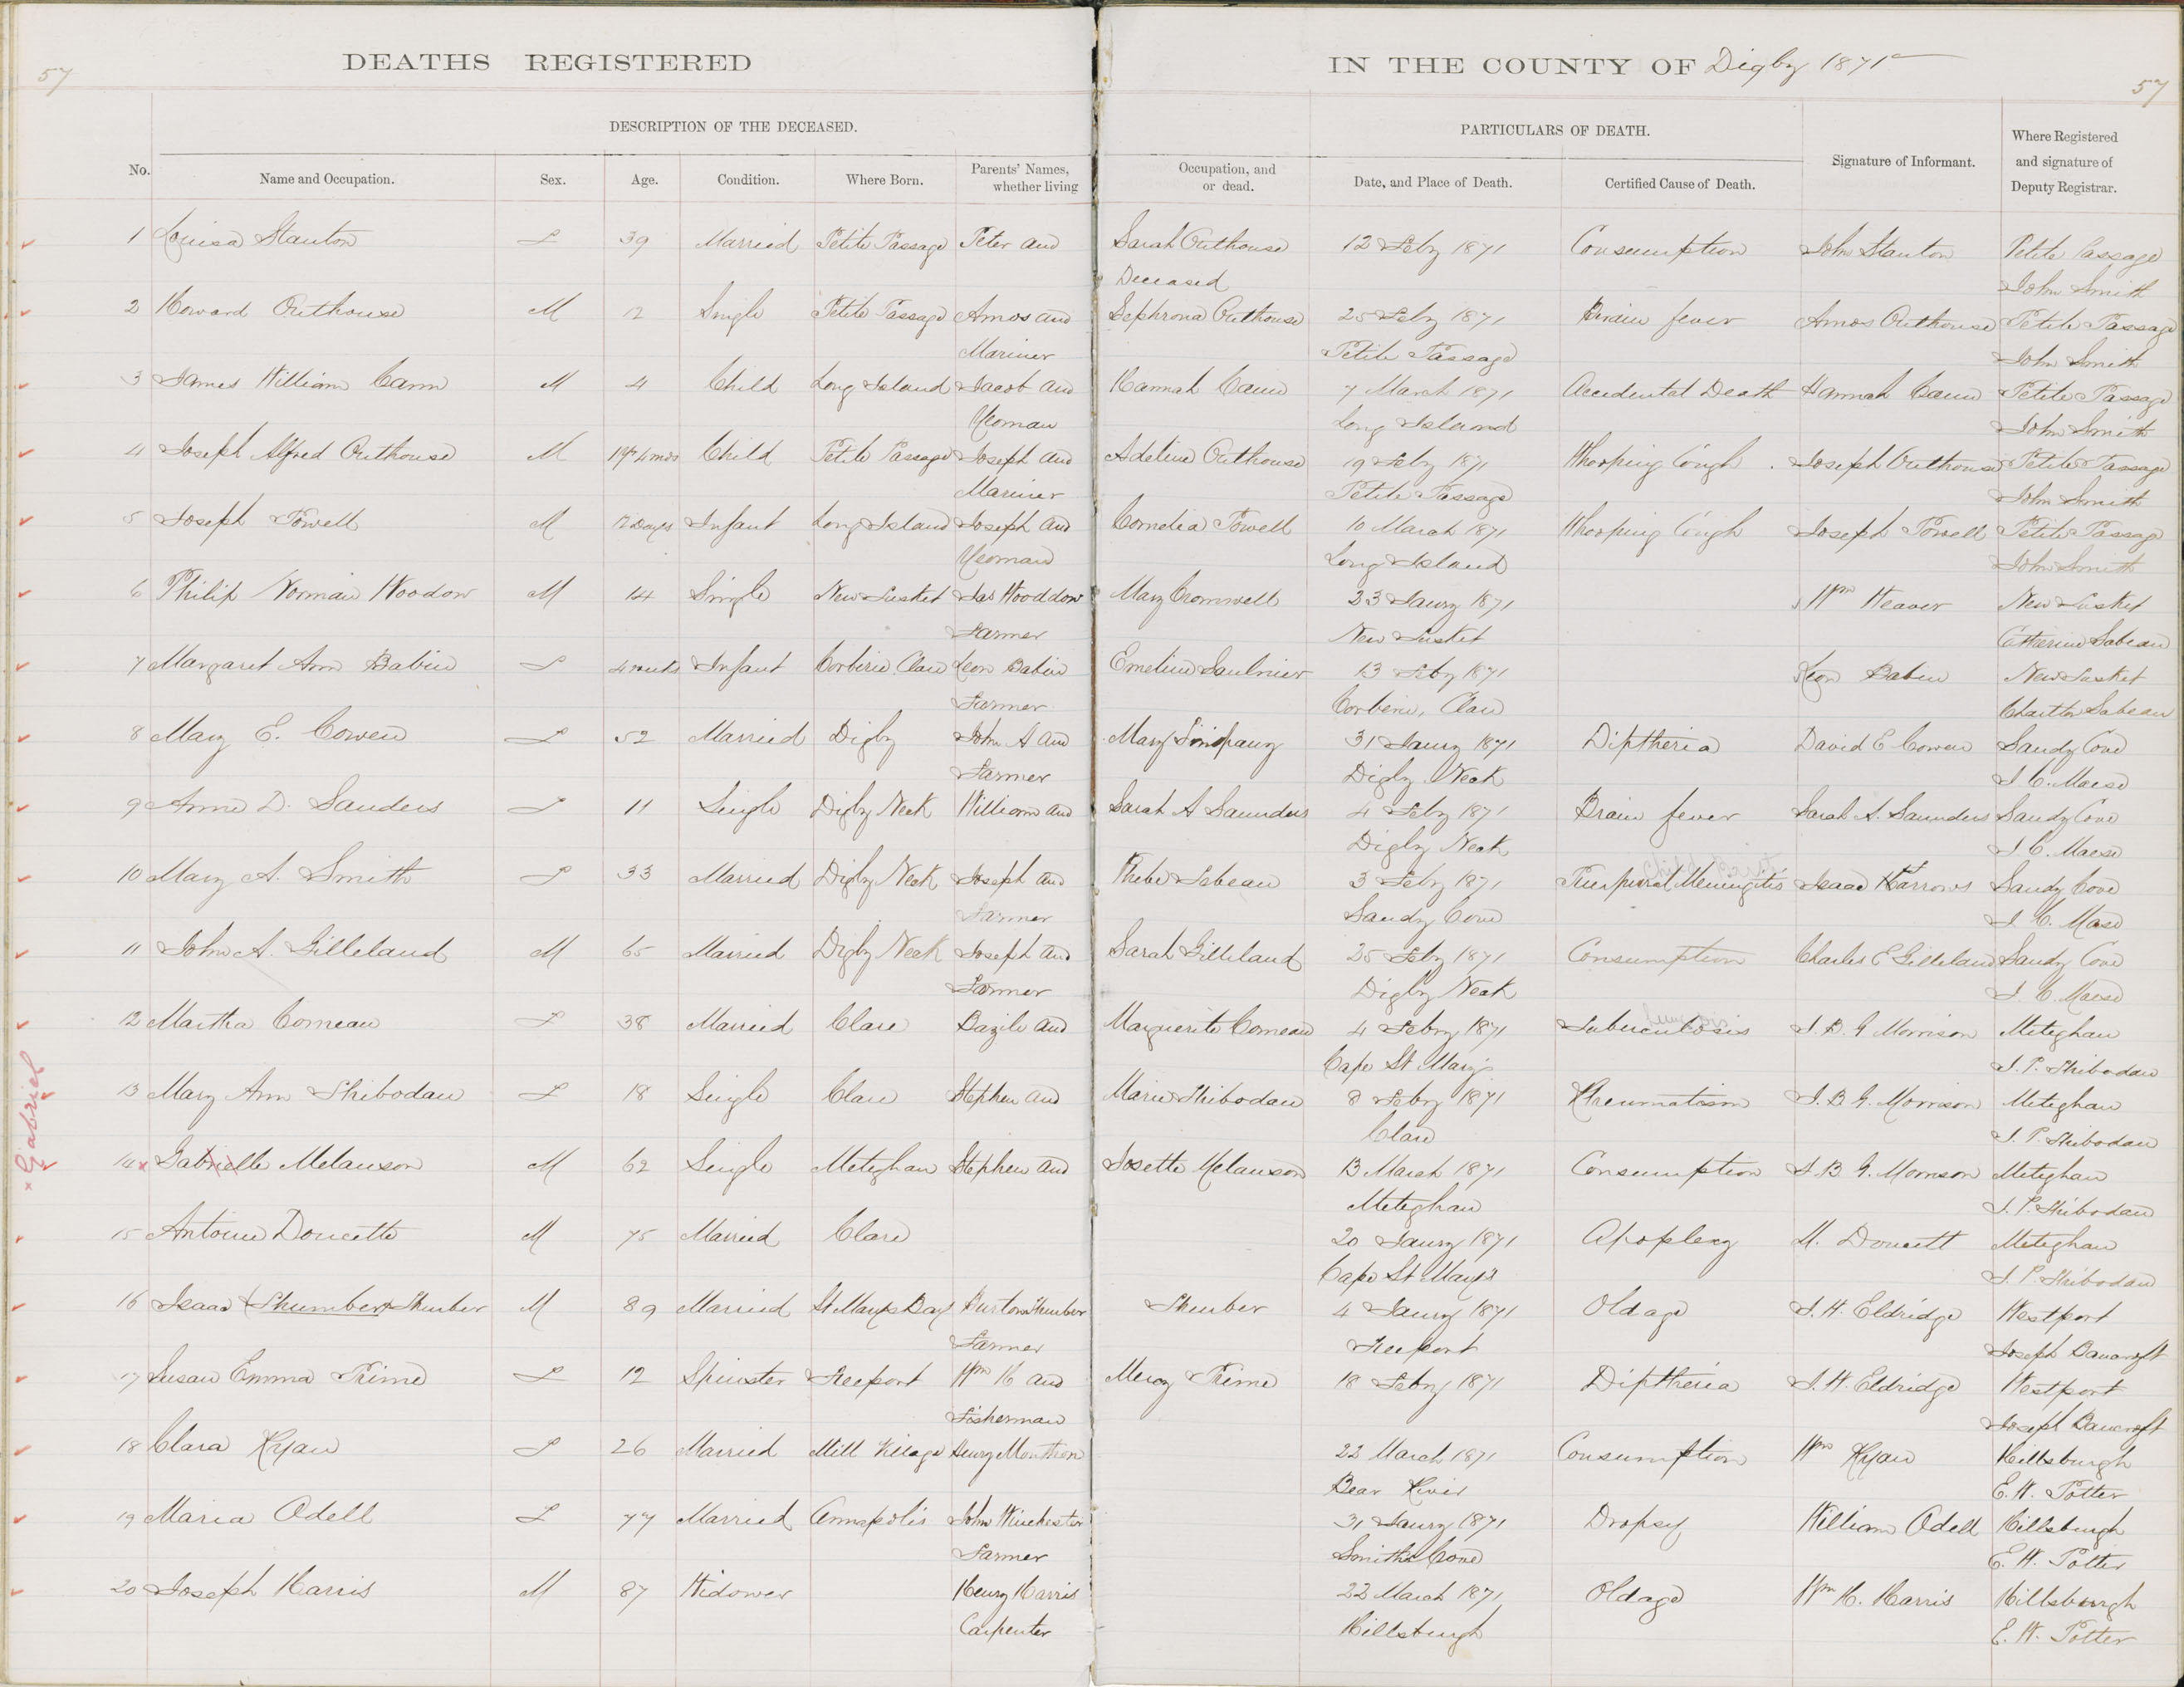 57
DEATHS REGISTERED
IN THE COUNTY OF Digby 1871
57
DESCRIPTION OF THE DECEASED.
PARTICULARS OF DEATH.
No. Name and Occupation. Sex. Age. Condition. Where Born. Parents' Names, whether living Occupation, and or dead. Date, and Place of Death. Certified Cause of Death. Signature of Informant. Where Registered and signature of Deputy Registrar.
1 Louisa Stanton F 39 Married Petite Passage Peter and Sarah Outhouse 12 Feby 1871 Consumption John Stanton Petite Passage
Deceased John Smith
2 Howard Outhouse M 12 Single Petite Passage Amos and Sephrona Outhouse 25 Feby 1871 Brain fever Amos Outhouse Petite Passage
Mariner Petite Passage John Smith
3 James William Cann M 4 Child Long Island Jacob and Hannah Cann 7 March 1871 Accidental Death Hannah Cann Petite Passage
Yeoman Long Island John Smith
4 Joseph Alfred Outhouse M 1yr 4mos Child Petite Passage Joseph and Adeline Outhouse 19 Feby 1871 Whooping Cough Joseph Outhouse Petite Passage
Mariner Petite Passage John Smith
5 Joseph Powell M Days Infant Long Island Joseph and Cornelia Powell 10 March 1871 Whooping Cough Joseph Powell Petite Passage
Yeoman Long Island John Smith
6 Philip Norman Woodow M 14 Single New Tusket Jas Wooddow Mary Cromwell 23 Jany 1871 Wm Weaver New Tusket
Farmer New Tusket Sabean
7 Margaret Ann Babin F 4 mnths Infant Corberie Clare Leon Babin Emeline Saulnier 13 Feby 1871 Leon Babin New Tusket
Farmer Corberie, Clare Sabean
8 Mary E. Cowen F 52 Married Digby John A and Mary 31 Jany 1871 Diptheria David E Cowen Sandy Cove
Farmer Digby Neck J. C. Morse
9 Anne D. Sanders F 11 Single Digby Neck William and Sarah A Saunders 4 Feby 1871 Brain fever Sarah A. Saunders Sandy Cove
Digby Neck J. C. Morse
10 Mary A. Smith F 33 Married Digby Neck Joseph and Phebe Sebeau 3 Feby 1871 Puerperal Meningitis Isaac Sandy Cove
Farmer Sandy Cove J. C. Morse
11 John A. Gilleland M 65 Married Digby Neck Joseph and Sarah Gilleland 25 Feby 1871 Consumption Charles E Gilleland Sandy Cove
Farmer Digby Neck J. C. Morse
12 Martha Comeau F 38 Married Clare Bazile and Marguerite Comeau 4 Febry 1871 Tuberculosis J. B. G Morrison Meteghan
Cape St Mary's J. P. Thibodau
13 Mary Ann Thibodau F 18 Single Clare Stephen and Marie Thibodau 8 Febry 1871 Rheumatism J. B. G. Morrison Meteghan
Clare J. P. Thibodau
× Gabriel
14 × Gabrielle Melanson M 62 Single Meteghan Stephen and Josette Melanson 13 March 1871 Consumption J. B. G. Morrison Meteghan
Meteghan J. P. Thibodau
15 Antoine Doucette M 75 Married Clare 20 Jany 1871 Apoplexy M. Doucett Meteghan
Cape St Mary's J. P. Thibodau
16 Isaac (Thurmber) Thurber M 89 Married St Marys Bay Burton Thurber Thurber 4 Jany 1871 Old age J. H. Eldridge Westport
Farmer Freeport Joseph Bancroft
17 Susan Emma Prime F 12 Spinster Freeport Wm H and Mercy Prime 18 Feby 1871 Diptheria J. H. Eldridge Westport
Fisherman Joseph Bancroft
18 Clara Ryan F 26 Married Mill Village Henry 22 March 1871 Consumption Wm Ryan Hillsburgh
Bear River E. W. Potter
19 Maria Odell F 77 Married Annapolis John Winchester 31 Jany 1871 Dropsy William Odell Hillsburgh
Farmer Smiths Cove E. W. Potter
20 Joseph Harris M 87 Widower Henry Harris 22 March 1871 Old age Wm H. Harris Hillsburgh
Carpenter Hillsburgh E. W. Potter